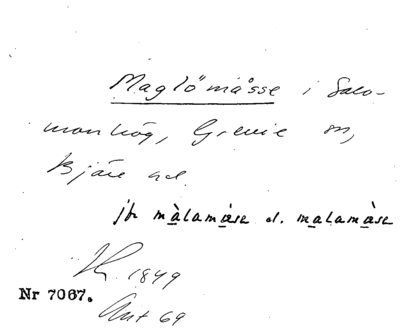 Maglömåsse i Salo-
monhög, Grevie sn,
Bjäre hd.
jfr màlamåse el. malamàse
1849
Nr 7067.
Ant 69